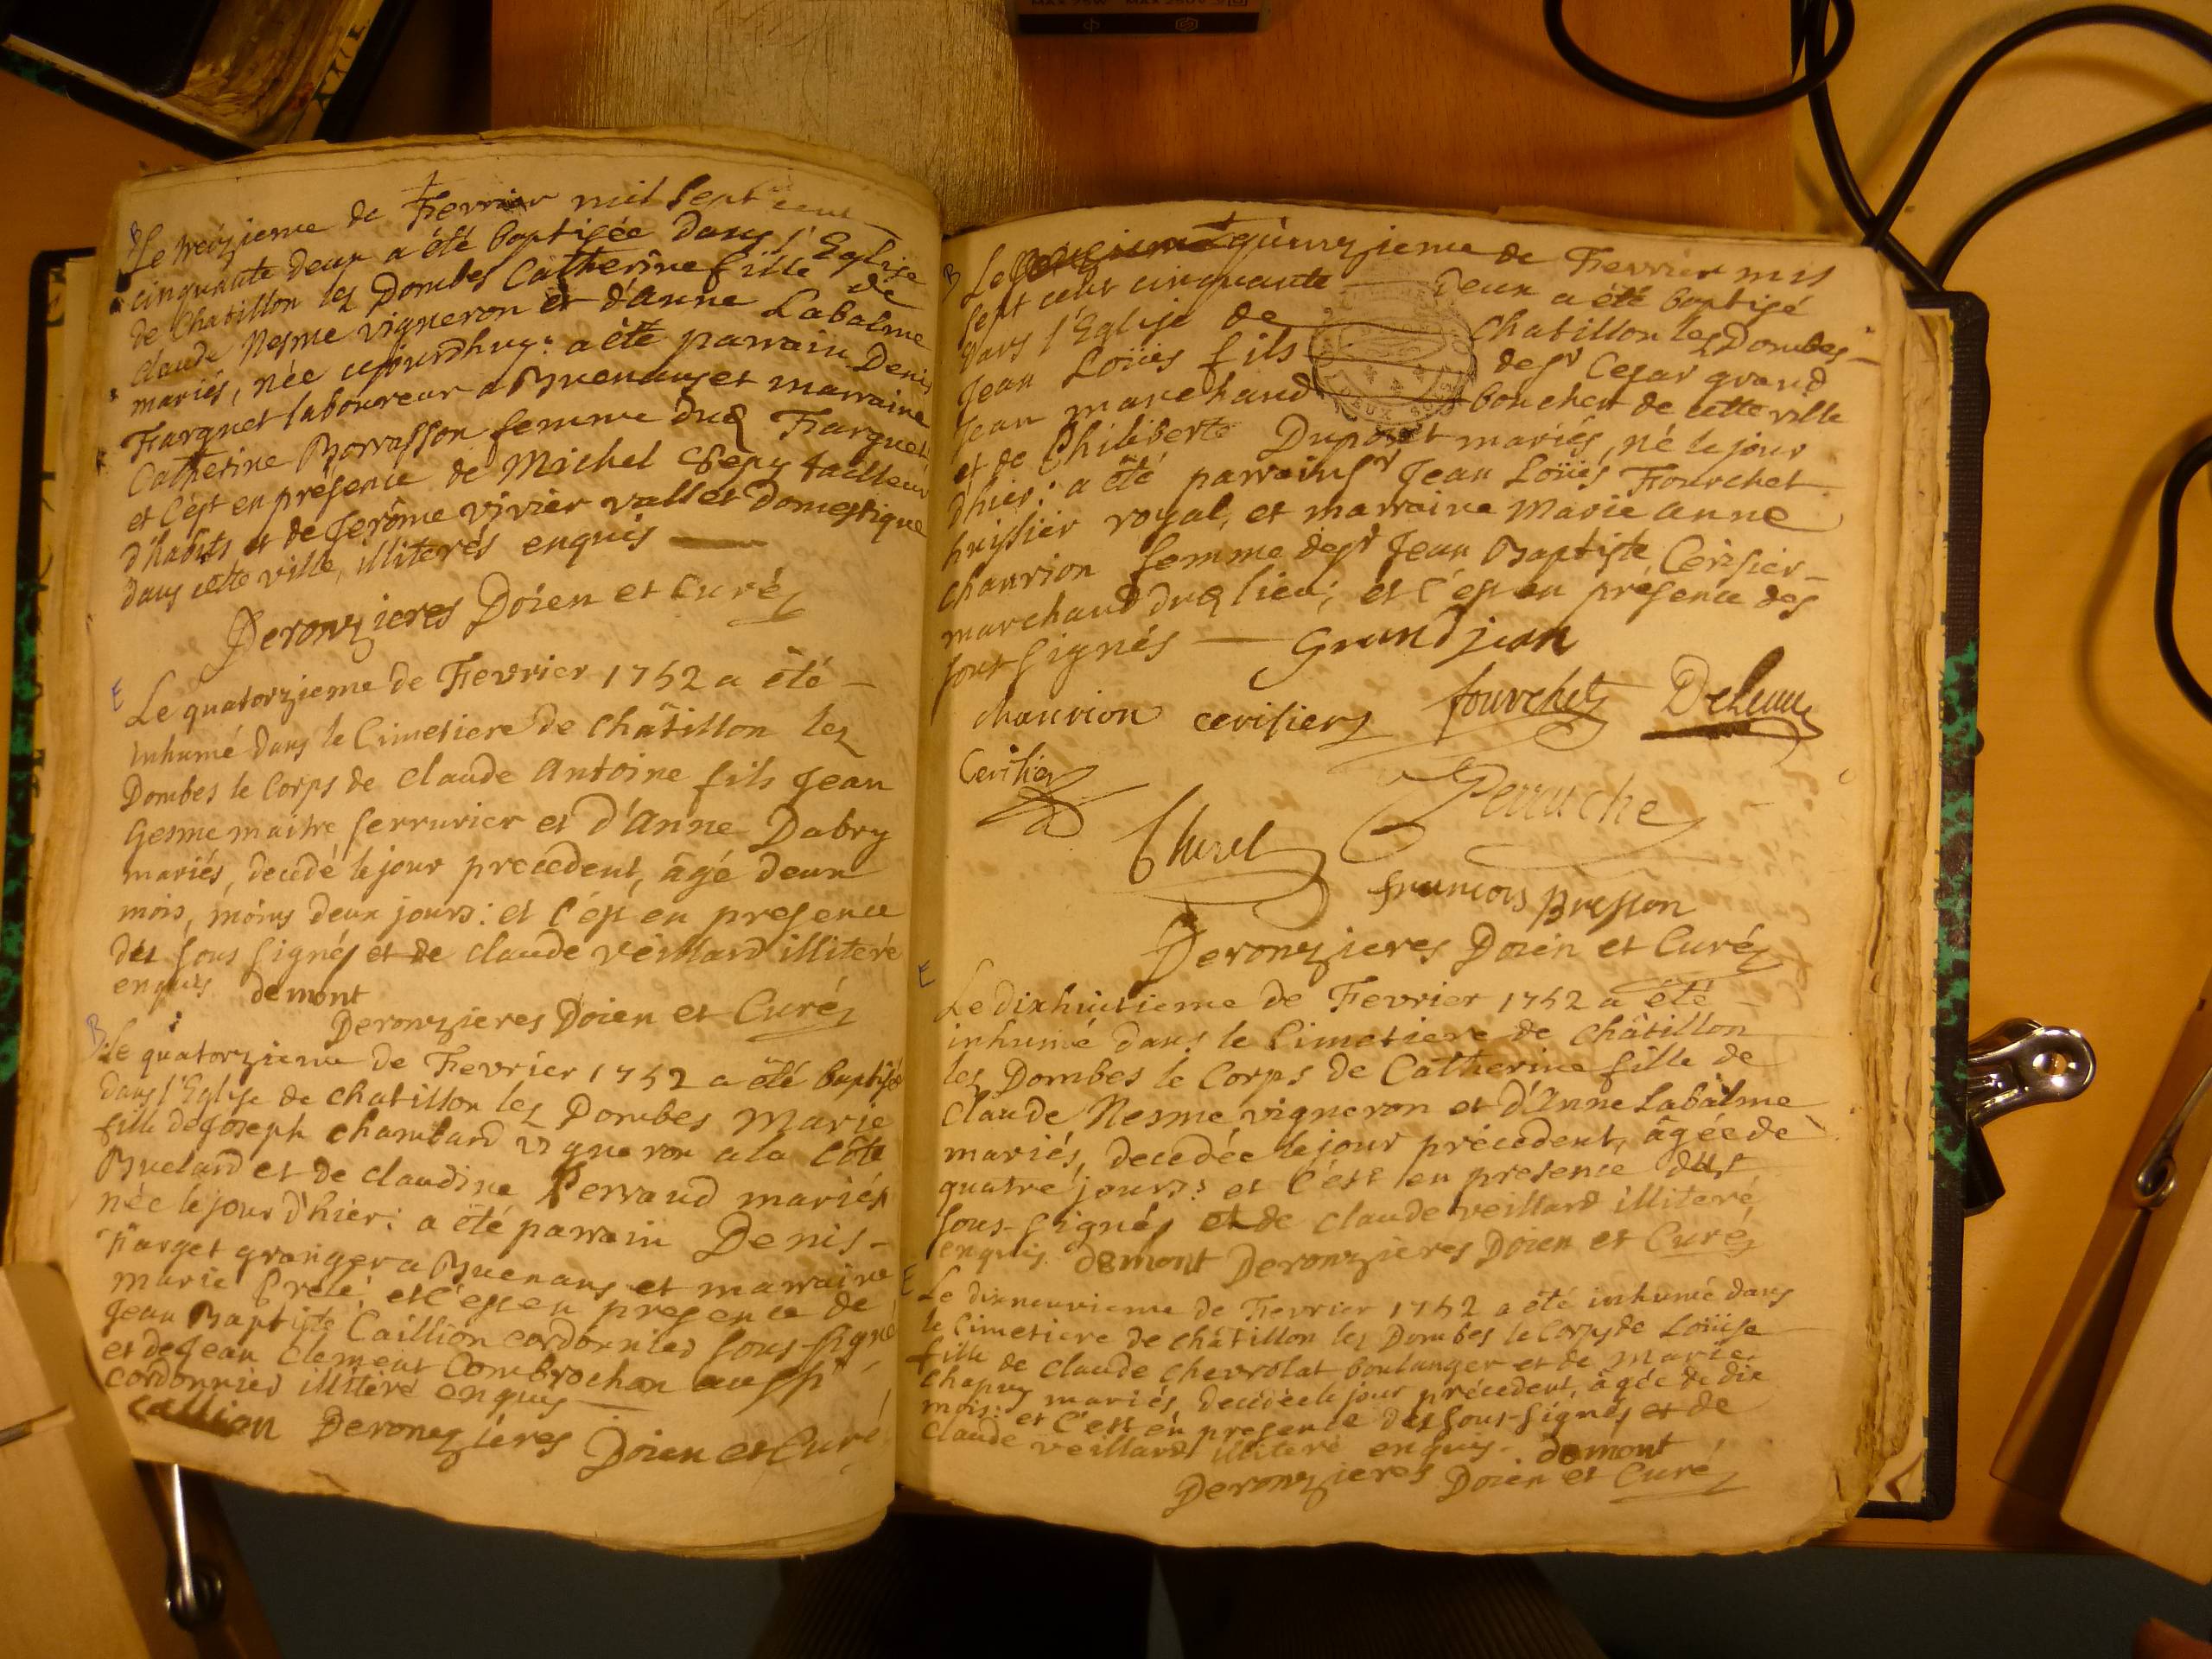 B
Le treizieme de Fevrier mil sept cent
cinquante deux a été baptisée dans l'Eglise
de Chatillon les Dombes Catherine fille de
claude Nesme vigneron et d'anne Labalme
mariés, née aujourdhuy: a été parrain Denis
Farguet laboureur a Buenans et marraine
Catherine femme dud Farguet
et c'est en présence de Michel tailleur
d'habits et de Jerôme vivier vallet Domestique
dans cette ville, illiterés enquis
Deronzieres Doien et Curé
E
Le quatorzieme de Fevrier 1752 a été
inhumé dans le Cimetiere de Châtillon les
Dombes le Corps de claude Antoine fils Jean
Gesme maitre serrurier et d'Anne Dabry
mariés, decedé le jour precedent, âgé deux
mois, moins deux jours: et c'est en presence
des sous signés et de claude veillard illiteré
enquis demont
Deronzieres Doien et Curé
B
Le quatorzieme de Fevrier 1752 a été baptisé
dans l'Eglise de chatillon les Dombes Marie
fille de Joseph chambard vigneron a la Côte
Buelard et de claudine Perraud mariés
née le jour d'hier: a été parrain Denis
Farget granger a Buenans et marraine
marie Prelé et c'est en presence de
Jean Baptiste Caillion cordonnier sous signé
et de Jean Clement Combrochon aussi
cordonnier illiteré enquis
callion Deronzieres Doien et Curé
B
Le quinzieme de Fevrier mil
sept cent cinquante deux a été baptisé
dans l'Eglise de Chatillon les Dombes
Jean Loüis fils de sr Cesar grand
Jean marchand boucher de cette ville
et de Philiberte Duponet mariés, né le jour
d'hier: a été parrain sr Jean Loüis Fourchet
huissier royal, et marraine Marie anne
chanrion femme de sr Jean Baptiste Cerisier
marchand dud lieu; et c'est en presence des
sous signés Grandjean
chanrion cerisier fourchet Deleau
Cerisier
Perruche
francois Bresson
Deronzieres Doien et Curé
E
Le dixhuitieme de Fevrier 1752 a été
inhumé dans le Cimetiere de Châtillon
les Dombes le Corps de Catherine fille de
Claude Nesme vigneron et d'Anne Labalme
mariés, decedée le jour précedent, âgée de
quatre jours: et c'est en presence des
sous-signés et de claude veillard illiteré
enquis. demont Deronzieres Doien et Curé
E
Le dixneuvieme de Fevrier 1752 a été inhumé dans
le Cimetiere de châtillon les Dombes le Corps de Loüise
fille de claude Chevrolat boulanger et de Marie
Chapuy mariés, decedée le jour précedent, âgée de dix
mois: et c'est en presence des sous-signés et de
Claude veillard illiteré enquis. demont
Deronzieres Doien et Curé